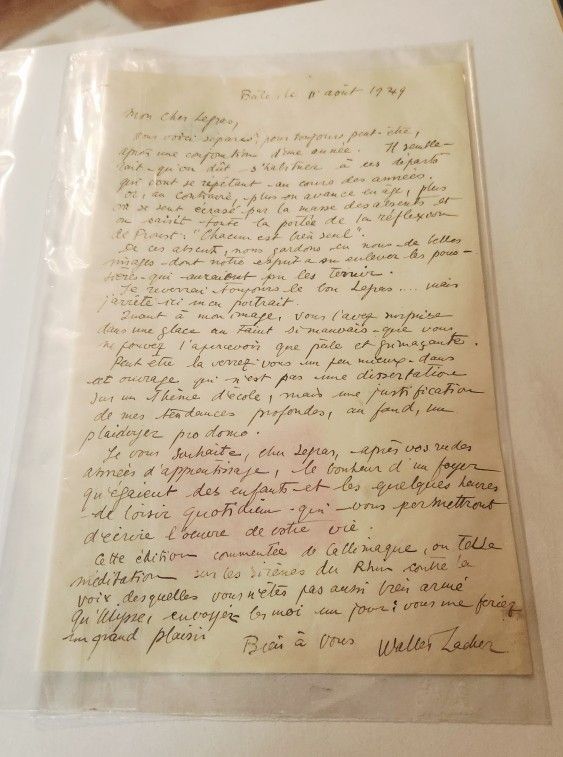 Bâle, le 11 août 1949
Mon cher Legras,
vous voici séparés pour toujours peut-être,
après une confrontation d'une année. Il semble-
rait qu'on dût s'habituer à ces départs
qui vont se répétant au cours des années.
Or, au contraire, plus on avance en âge, plus
on se sent écrasé par la masse des absents et
on saisit toute la portée de la réflexion
de Proust: "Chacun est bien seul".
De ces absents, nous gardons en nous de belles
images dont notre esprit a su enlever les pous-
sières qui auraient pu les ternir.
Je reverrai toujours le bon Legras .... mais
j'arrête ici mon portrait.
Quant à mon image, vous l'avez surprise
dans une glace au teint si mauvais que vous
ne pouvez l'apercevoir que pâle et grimaçante.
Peut être la verrez vous un peu mieux dans
cet ouvrage qui n'est pas une dissertation
sur un thème d'école, mais une justification
de mes tendances profondes, au fond, un
plaidoyer pro domo.
Je vous souhaite, cher Legras, après vos rudes
années d'apprentissage, le bonheur d'un foyer
qu'égaient des enfants et les quelques heures
de loisir quotidien qui vous permettront
d'écrire l'oeuvre de votre vie.
Cette édition commentée de Callimaque, ou telle
méditation sur les sirènes du Rhin contre la
voix desquelles vous n'êtes pas aussi bien armé
qu'Ulysse, envoyez les moi un jour: vous me feriez
un grand plaisir
Bien à vous Walter Lacher